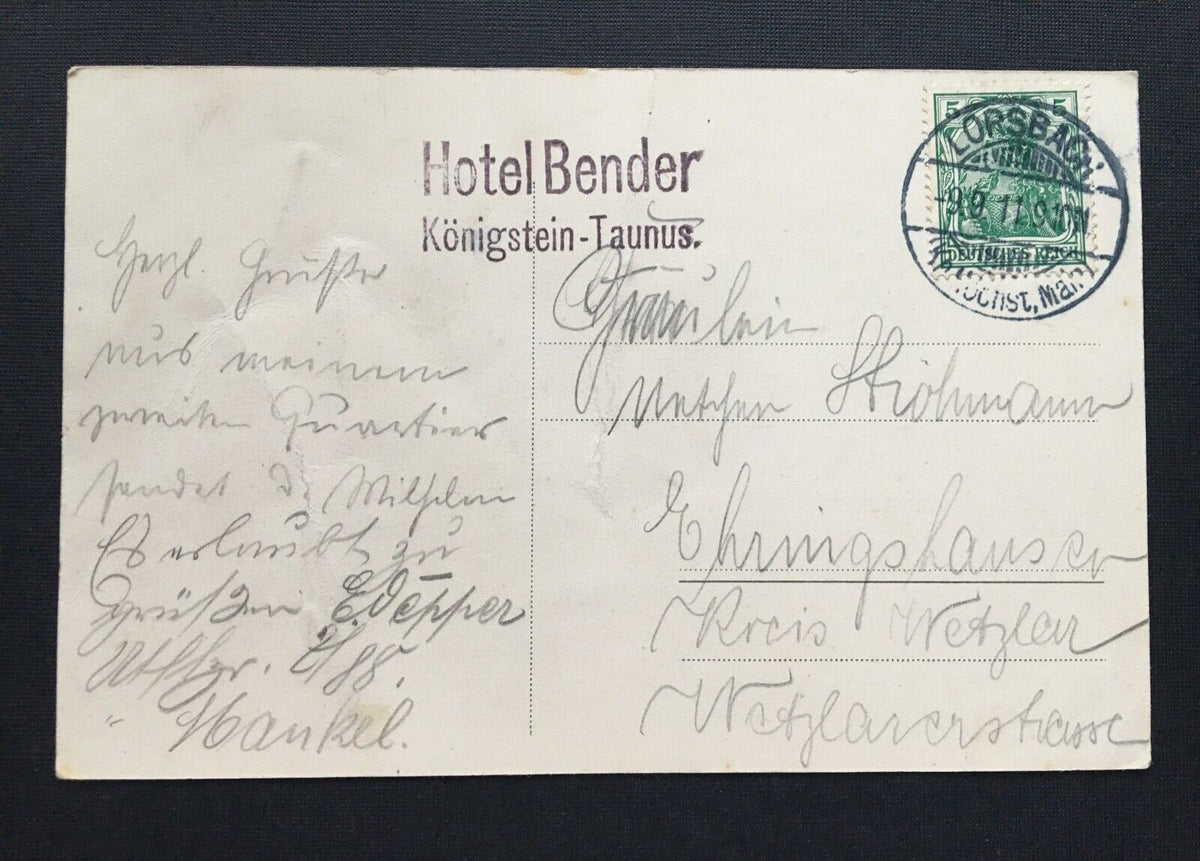 Hotel Bender
Königstein-Taunus.
5 5
LORSBACH
-9.9.11.9-10V
DEUTSCHES REICH
Höchst, Main
Herzl. Grüße
aus meinem
zweiten Quartier
sendet d. Wilhelm
Es erlaubt zu
grüßen
Hankel.
Fräulein
Ströhmann
Ehringshausen
Kreis Wetzlar
Wetzlarerstrasse